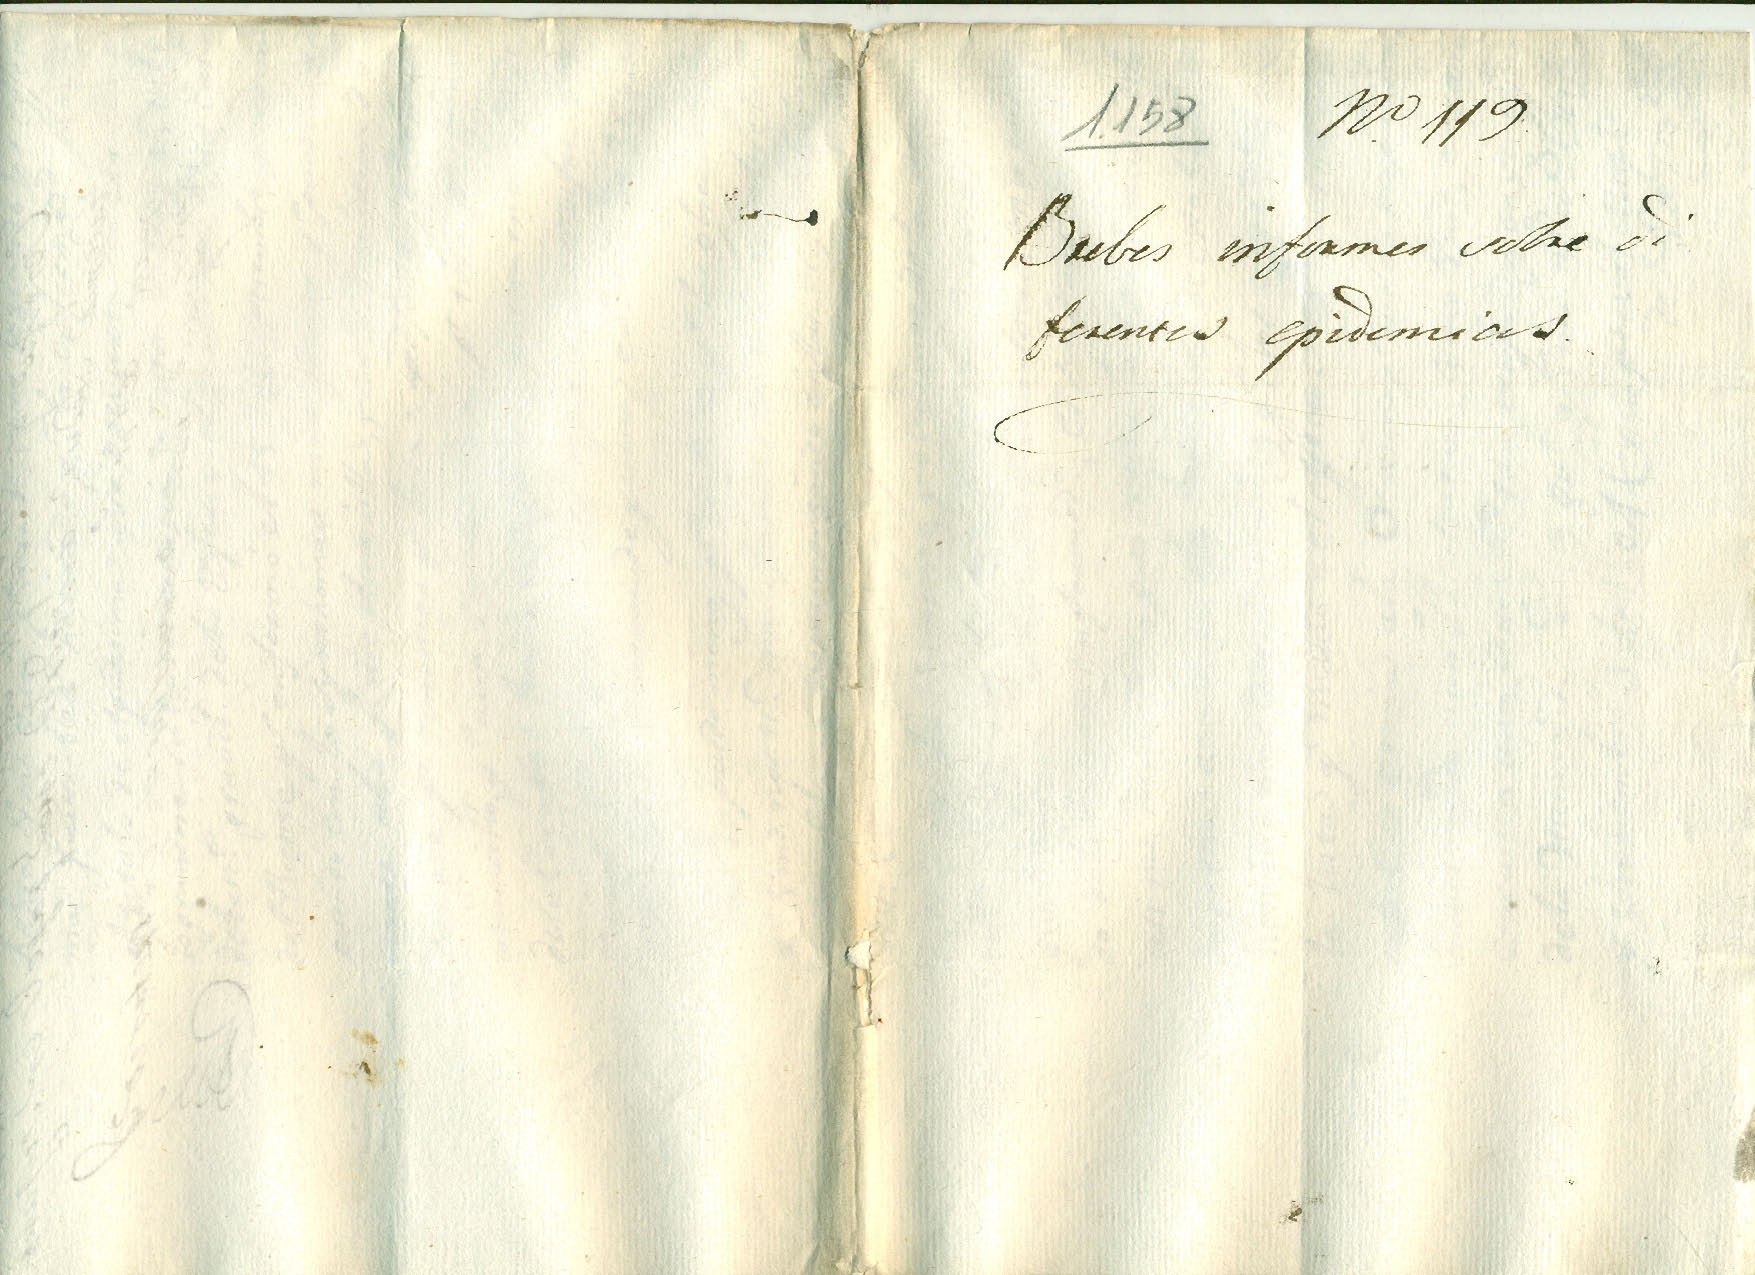 1.158
Nº 119
Brebes informes sobre di
ferentes epidemias.